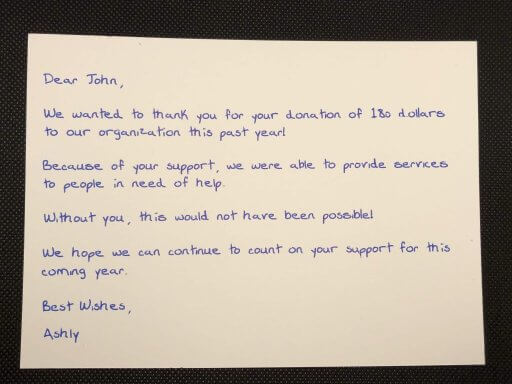 Dear John,
We wanted to thank you for your donation of 180 dollars
to our organization this past year!
Because of your support, we were able to provide services
to people in need of help.
Without you, this would not have been possible!
We hope we can continue to count on your support for this
coming year.
Best Wishes,
Ashly